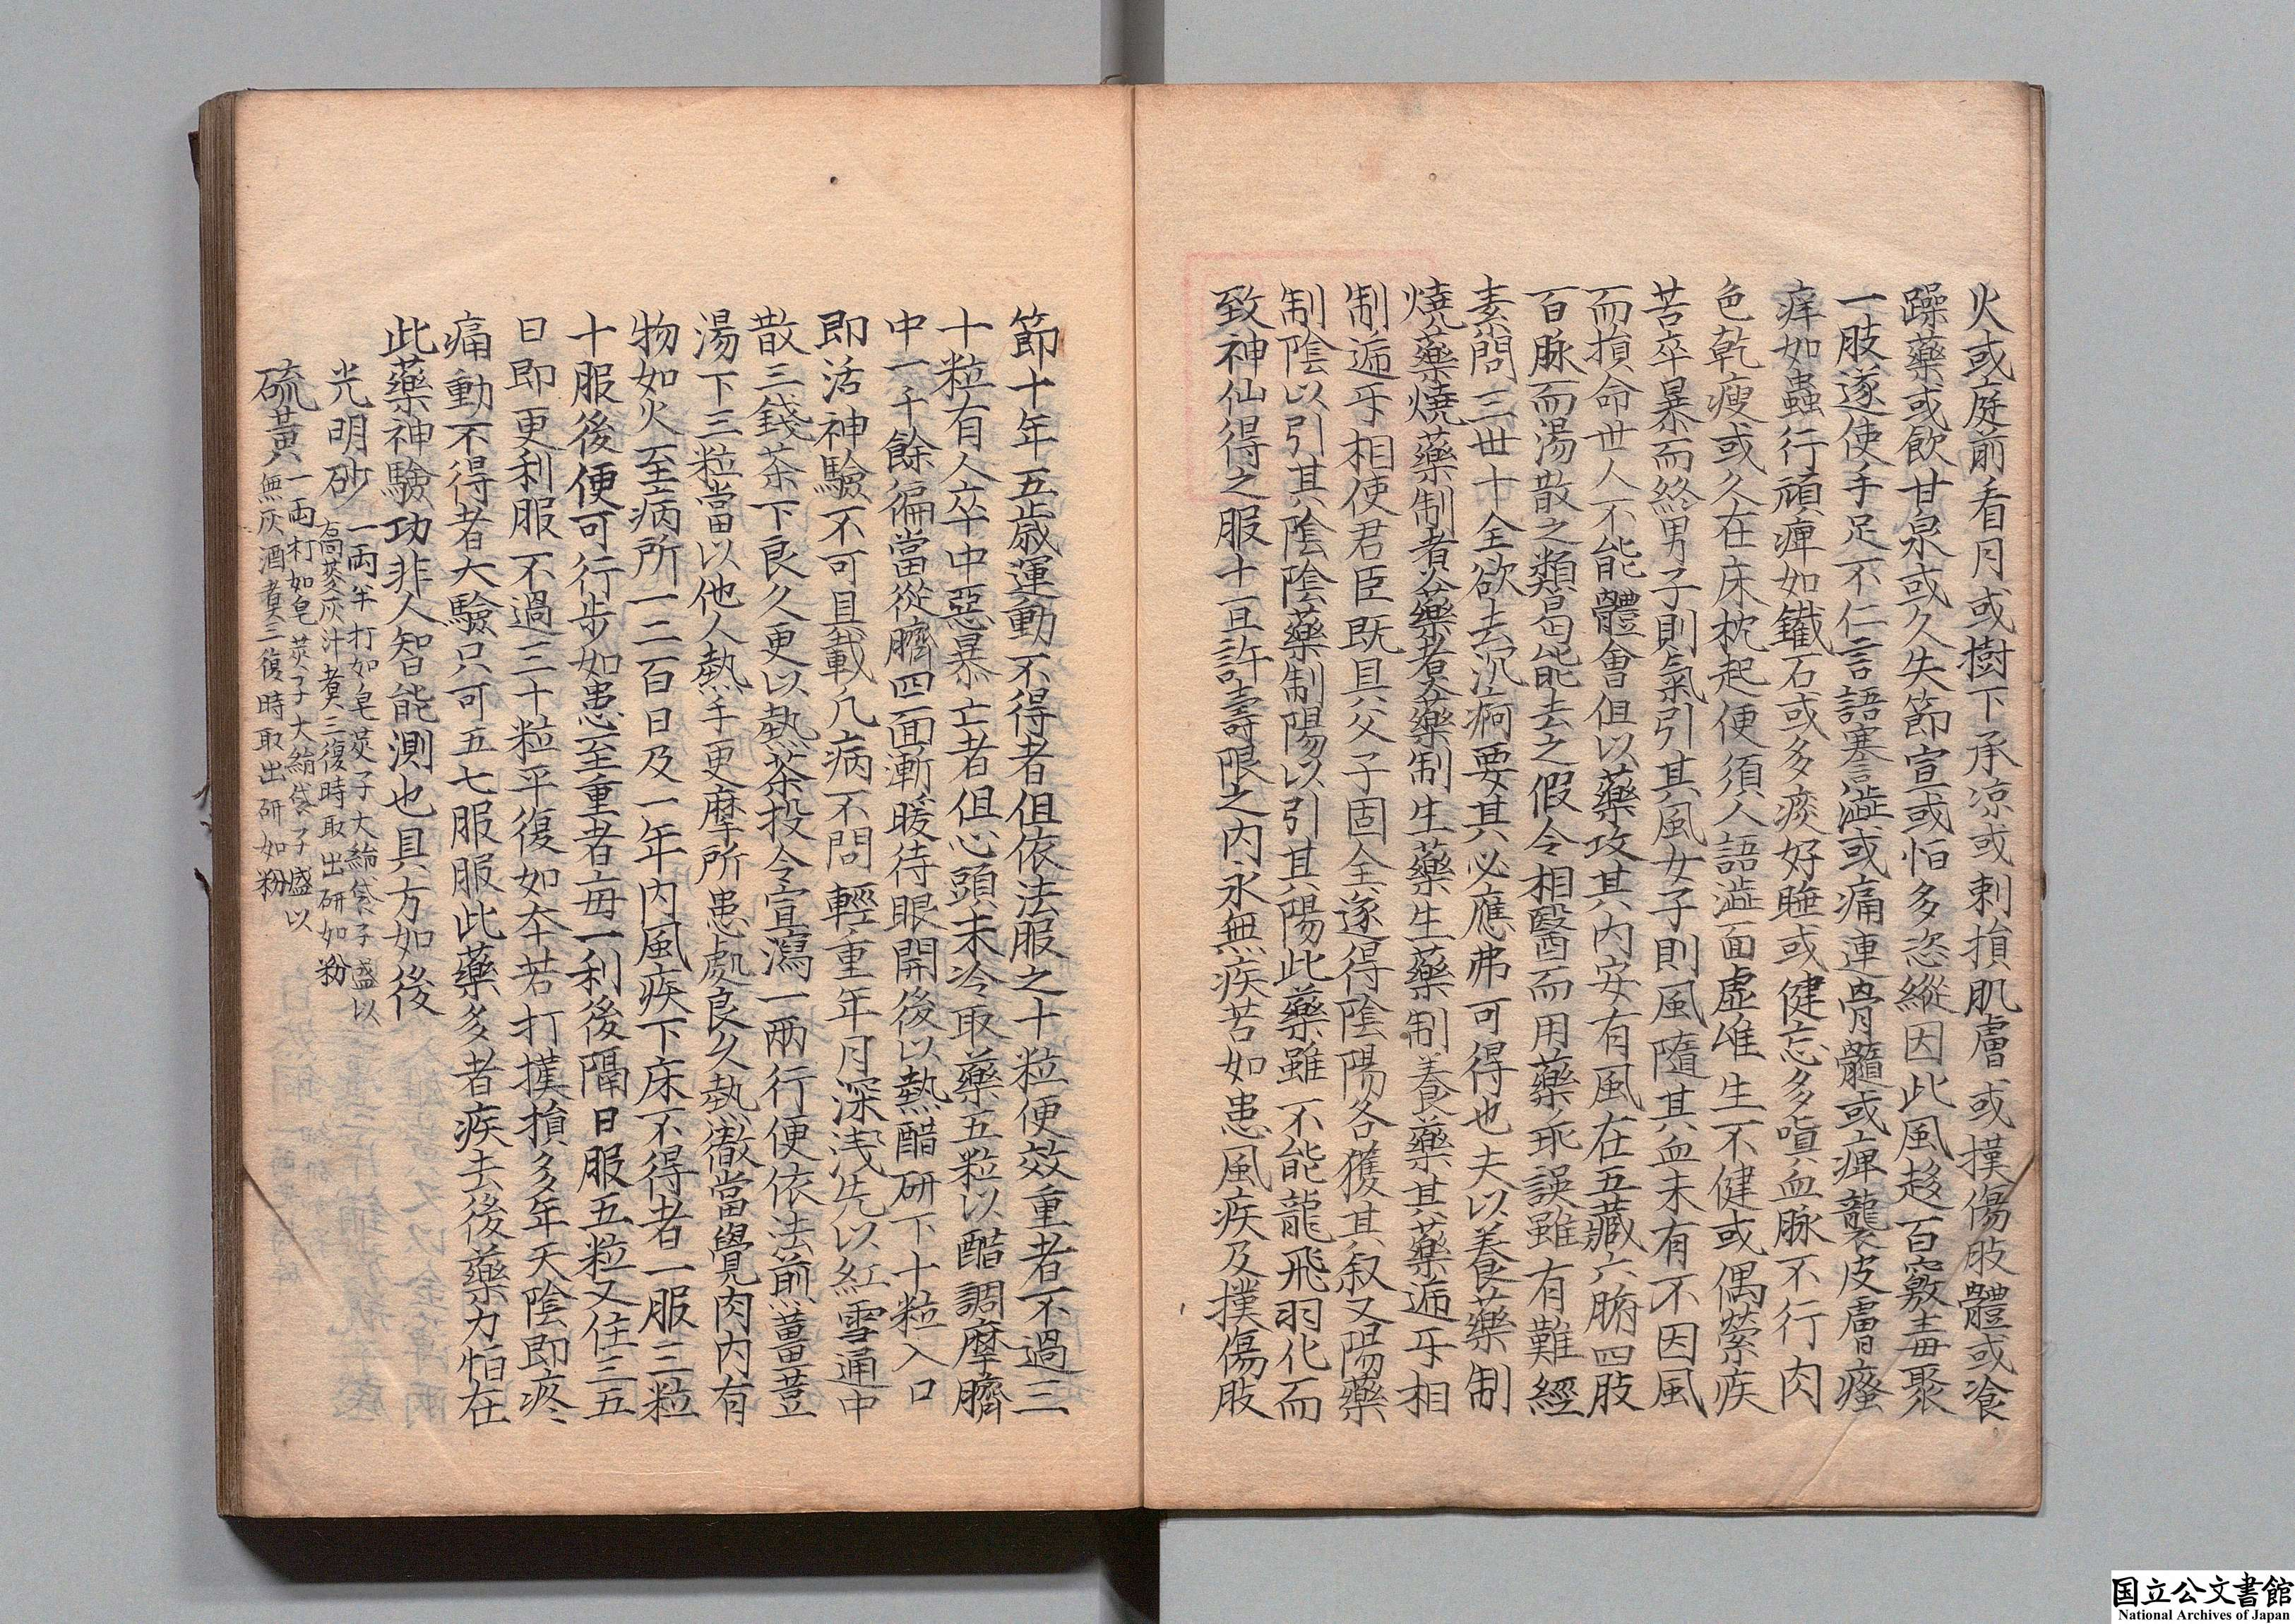 火或庭前看月或樹下承凉或刺損肌膚或撲傷肢體或飡
躁藥或飲甘泉或久失節宣或怕多恣縱因此風趍百竅毒聚
一肢遂使手足不仁言語蹇澁或痛連骨髓或痺襲皮膚瘙
痒如蟲行頑痺如鐵石或多痰好睡或健忘多嗔血脉不行肉
色乾瘦或久在床枕起便須人語澁面虚唯生不健或偶縈疾
苦卒暴而終男子則氣引其風女子則風隨其血未有不因風
而損命世人不能體會但以藥攻其内安有風在五藏六腑四肢
百脉而湯散之類曷能去之假令相醫而用藥乖誤雖有難經
素問三世十全欲去沉痾要其必應弗可得也夫以養藥制
燒藥燒藥制煮藥煮藥制生藥生藥制養藥其藥逓牙相
制逓牙相使君臣既具父子固全遂得陰陽各獲其叙又陽藥
制陰以引其陰陰藥制陽以引其陽此藥雖不能龍飛羽化而
致神仙得之服十直許壽限之内永無疾苦如患風疾及撲傷肢
節十年五歳運動不得者但依法服之十粒便效重者不過三
十粒有人卒中惡暴亡者但心頭未冷取藥五粒以醋調摩臍
中一千餘徧當從臍四面漸暖待眼開後以熱醋研下十粒入口
即活神驗不可具載凢病不問輕重年月深浅先以紅雪通中
散三錢茶下良久更以熱茶投令宣瀉一兩行便依法煎薑荳
湯下三粒當以他人熱手更摩所患處良久熱徹當覺肉内有
物如火至病所一二百日及一年内風疾下床不得者一服三粒
十服後便可行步如患至重者毎一利後隔日服五粒又住三五
日即更利服不過三十粒平復如夲若打撲損多年天陰即疼〻
痛動不得者大驗只可五七服服此藥多者疾去後藥力怕在
此藥神驗功非人智能測也具方如後
光明砂 一兩半打如皂莢子大絹袋子盛以
蒿蔘灰汁煮三復時取出研如粉
硫黄 一兩打如皂莢子大絹袋子盛以
無灰酒煮三復時取出研如粉
国立公文書館
National Archives of Japan